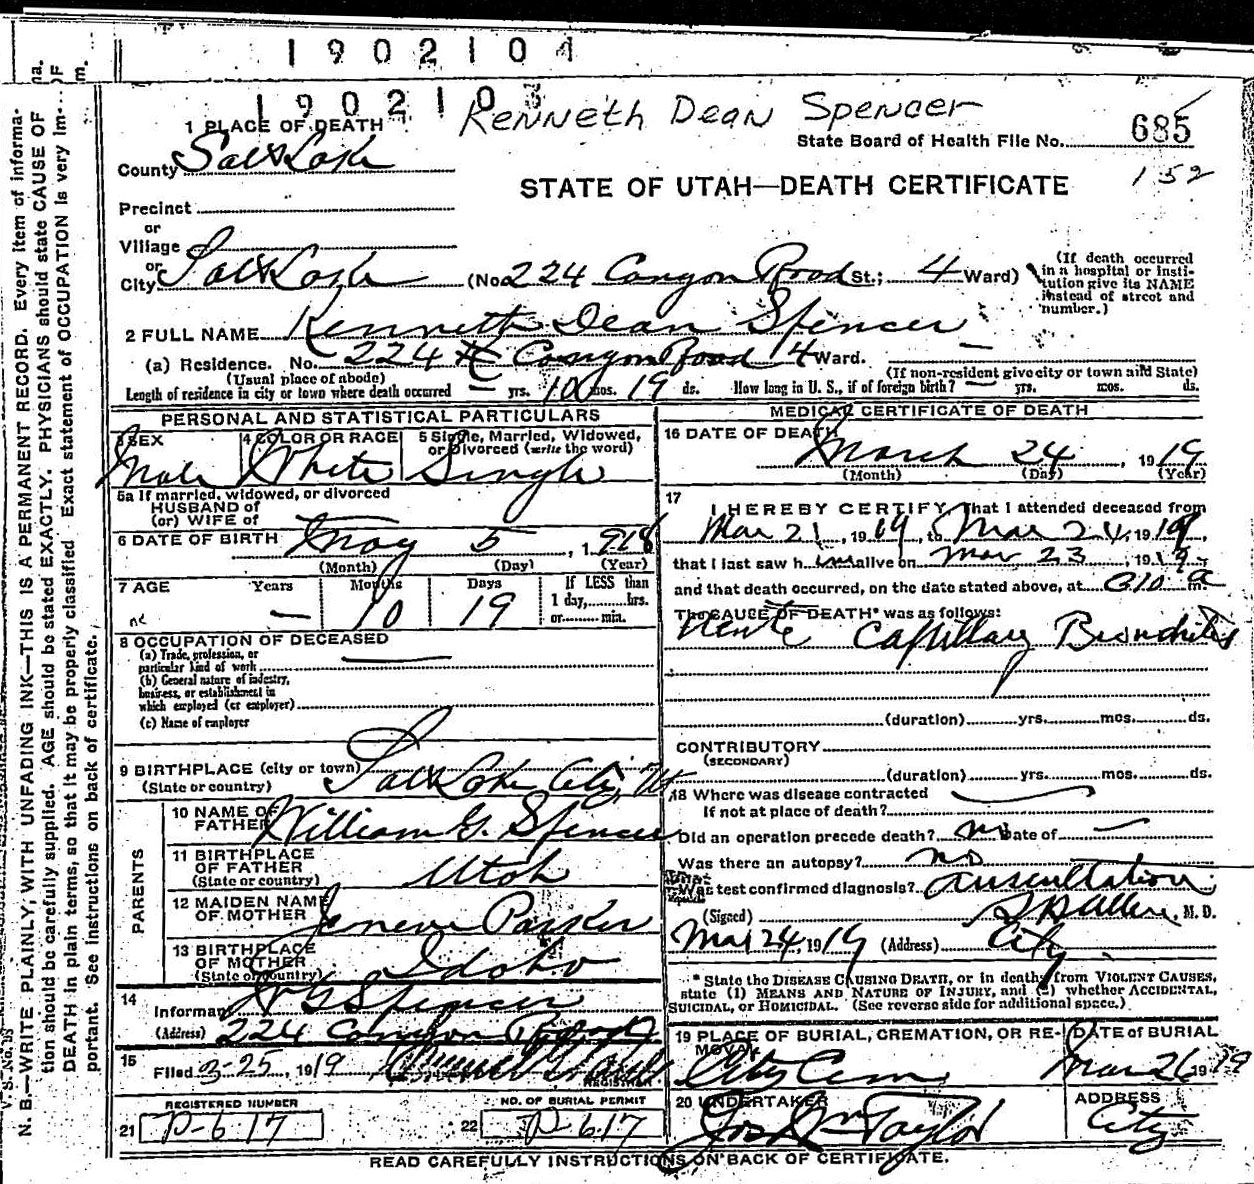 1902104
190210
Kenneth Dean Spencer
1 PLACE OF DEATH
State Board of Health File No. 685
County Salt Lake
STATE OF UTAH—DEATH CERTIFICATE
152
Precinct
or
Village
or
City Salt Lake (No. 224 Canyon Road St.; 4 Ward)
(If death occurred in a hospital or insti-
tution give its NAME
instead of street and
number.)
2 FULL NAME Kenneth Dean Spencer
(a) Residence. No. 224 Canyon Road 4 Ward.
(Usual place of abode)
(If non-resident give city or town and State)
Length of residence in city or town where death occurred — yrs. 10 mos. 19 ds. How long in U. S., if of foreign birth? — yrs. mos. ds.
PERSONAL AND STATISTICAL PARTICULARS
3 SEX
Male
4 COLOR OR RACE
White
5 Single, Married, Widowed,
or Divorced (write the word)
Single
5a If married, widowed, or divorced
HUSBAND of
(or) WIFE of
6 DATE OF BIRTH May 5, 1918
(Month) (Day) (Year)
7 AGE Years Months Days If LESS than
1 day, hrs.
or min.
— 10 19
8 OCCUPATION OF DECEASED
(a) Trade, profession, or
particular kind of work
(b) General nature of industry,
business, or establishment in
which employed (or employer)
(c) Name of employer
9 BIRTHPLACE (city or town) Salt Lake City, Ut
(State or country)
PARENTS
10 NAME OF
FATHER William G. Spencer
11 BIRTHPLACE
OF FATHER
(State or country) Utah
12 MAIDEN NAME
OF MOTHER Parker
13 BIRTHPLACE
OF MOTHER
(State or country) Idaho
14
Informant W G Spencer
(Address) 224 Canyon Road
15
Filed 3-25, 1919
REGISTRAR
REGISTERED NUMBER
21 D-617
NO. OF BURIAL PERMIT
22 D-617
MEDICAL CERTIFICATE OF DEATH
16 DATE OF DEATH
March 24, 1919
(Month) (Day) (Year)
17
I HEREBY CERTIFY, That I attended deceased from
Mar 21, 1919, to Mar 24, 1919,
that I last saw him alive on Mar 23, 1919,
and that death occurred, on the date stated above, at 310 a m.
The CAUSE OF DEATH* was as follows:
Acute Capillary Bronchitis
(duration) yrs. mos. ds.
CONTRIBUTORY
(SECONDARY)
(duration) yrs. mos. ds.
18 Where was disease contracted
If not at place of death?
Did an operation precede death? no Date of —
Was there an autopsy? no
What test confirmed diagnosis? Auscultation
(Signed) M. D.
Mar 24, 1919 (Address) City
* State the DISEASE CAUSING DEATH, or in deaths from VIOLENT CAUSES,
state (1) MEANS AND NATURE OF INJURY, and (2) whether ACCIDENTAL,
SUICIDAL, or HOMICIDAL. (See reverse side for additional space.)
19 PLACE OF BURIAL, CREMATION, OR RE-
MOVAL
City Cem
DATE of BURIAL
Mar 26 1919
20 UNDERTAKER
Jos Wm Taylor
ADDRESS
City
READ CAREFULLY INSTRUCTIONS ON BACK OF CERTIFICATE.
N. B.—WRITE PLAINLY, WITH UNFADING INK—THIS IS A PERMANENT RECORD. Every item of informa-
tion should be carefully supplied. AGE should be stated EXACTLY. PHYSICIANS should state CAUSE OF
DEATH in plain terms, so that it may be properly classified. Exact statement of OCCUPATION is very im-
portant. See instructions on back of certificate.